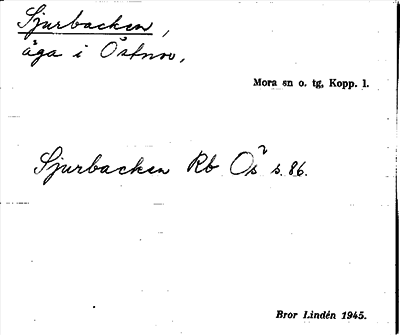 Sjurbacken,
äga i Östnor,
Mora sn o. tg, Kopp. l.
Sjurbacken Rb Ös² s. 86.
Bror Lindén 1945.